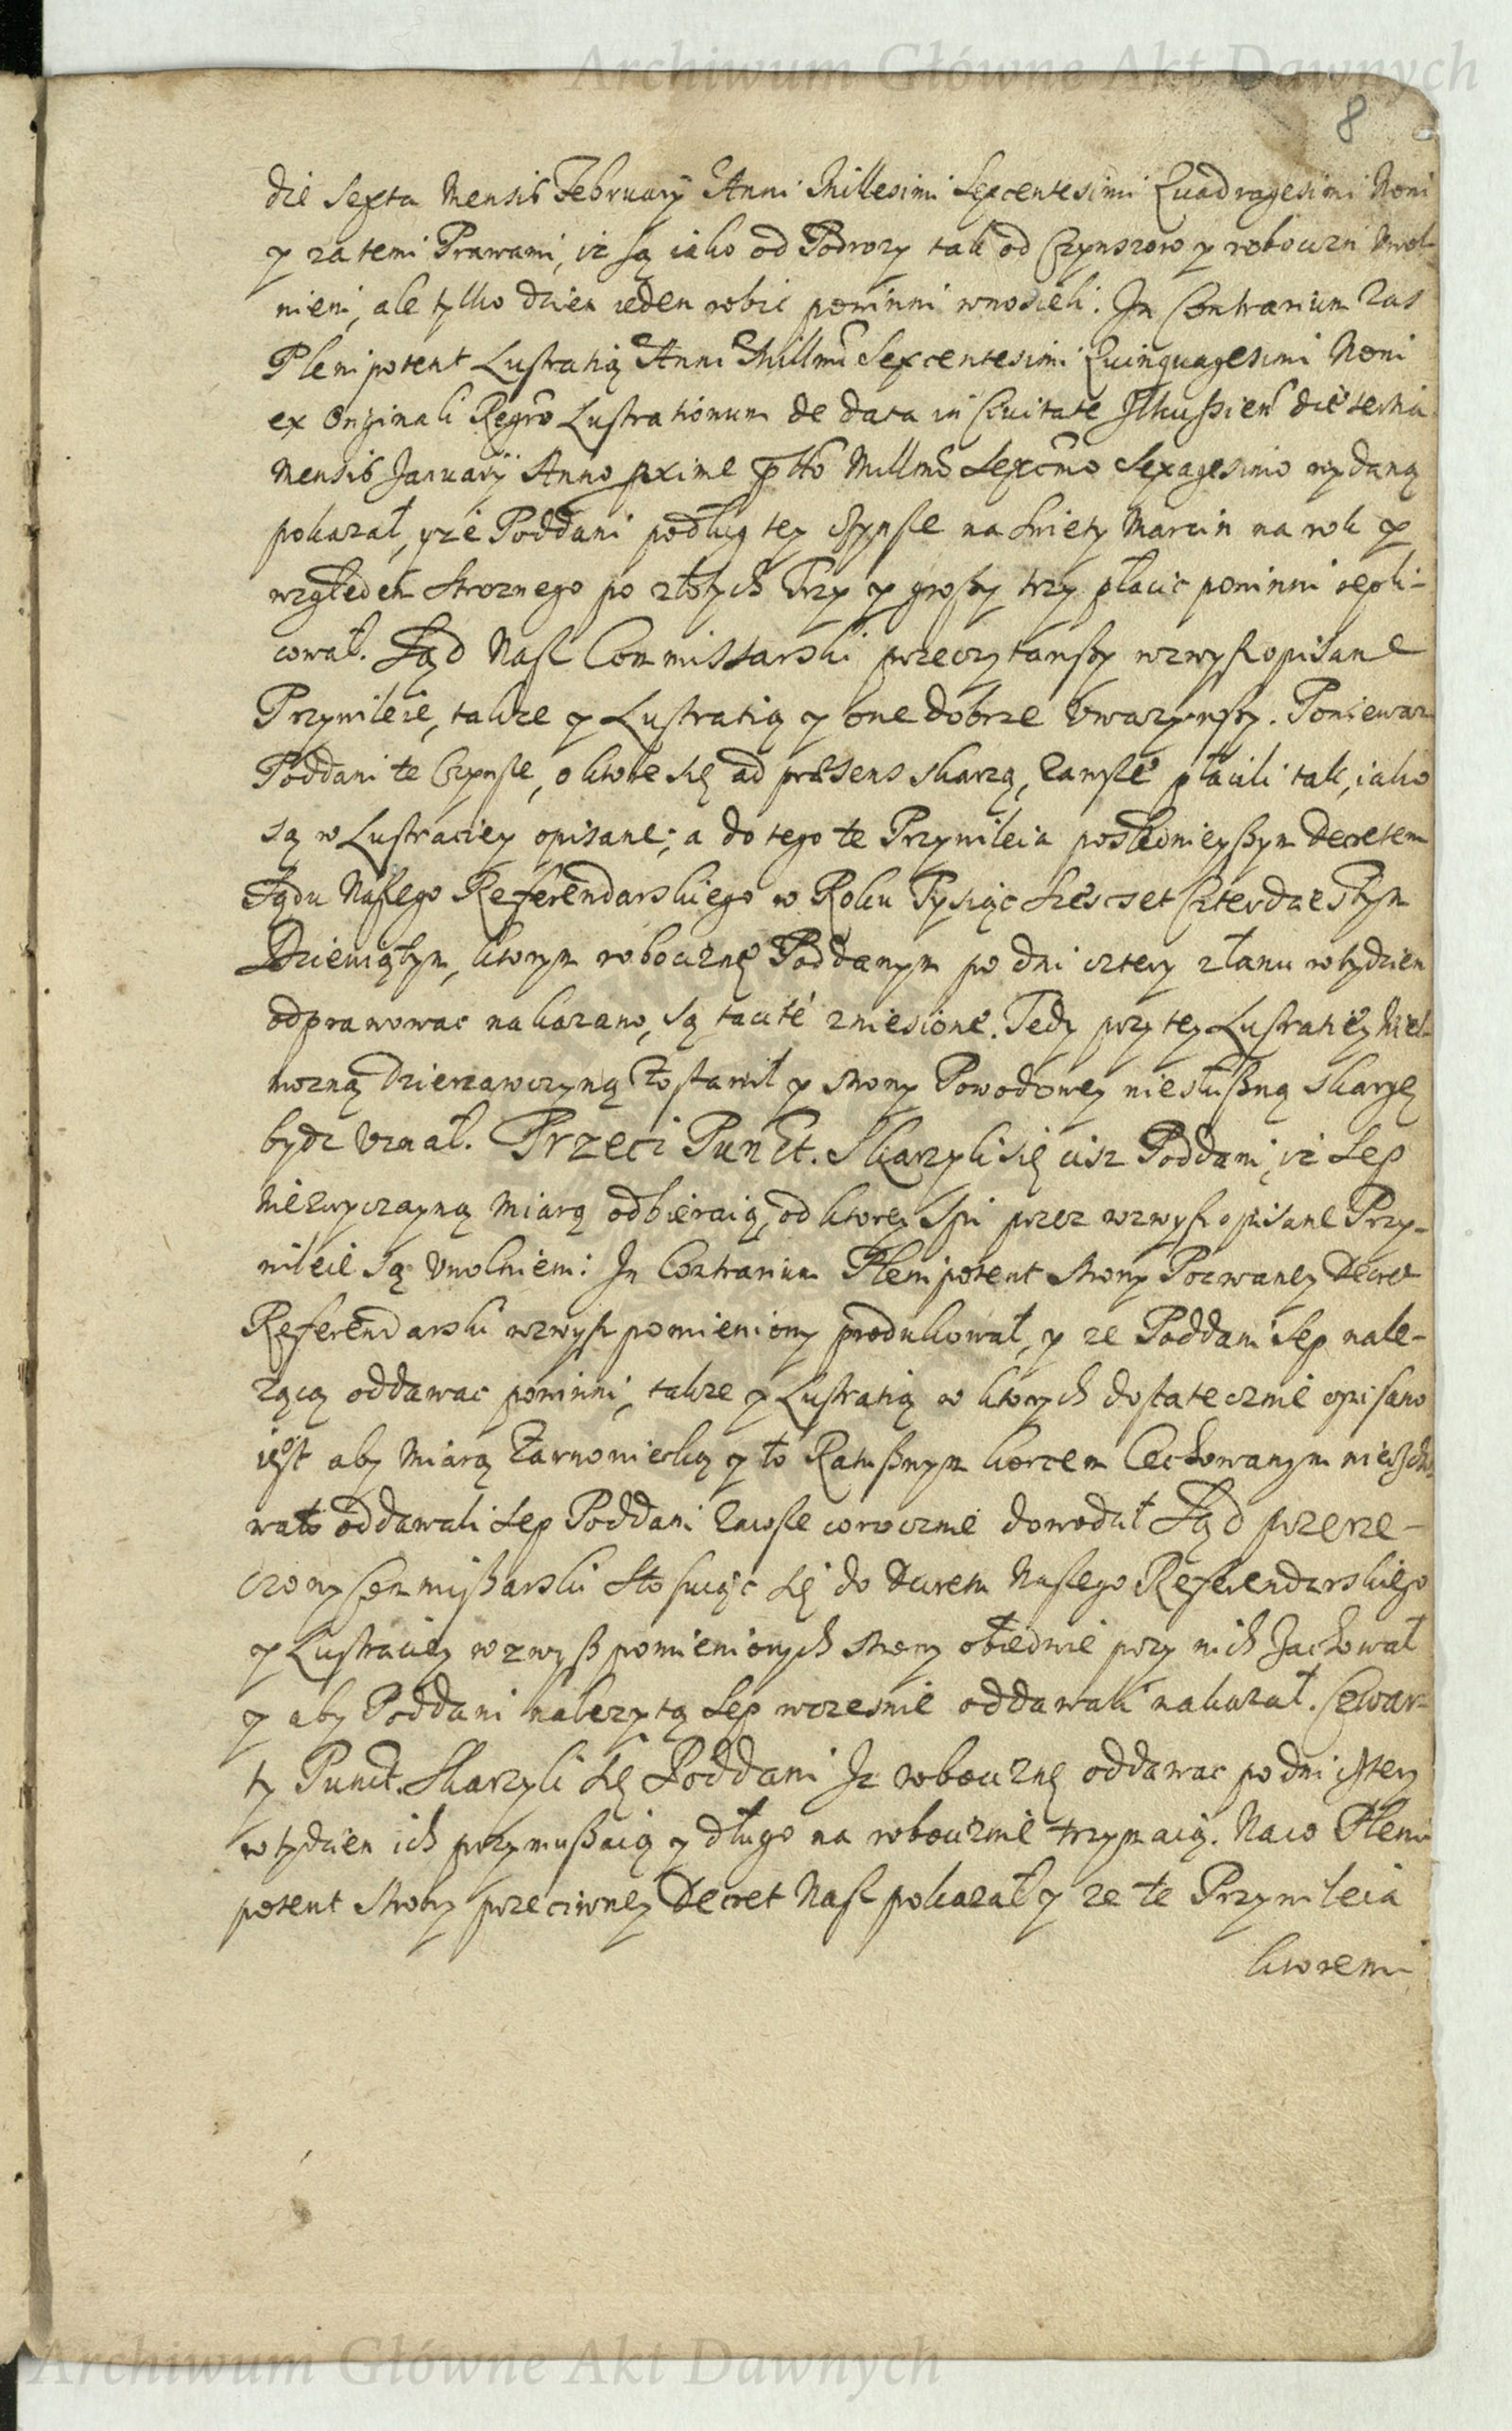 Archiwum Główne Akt Dawnych
8
die Sexta Mensis February Anni Millesimi Sexcentesimi Quadragesimi Noni
y za temi Prawami, iz są iako od Podrozy tak od Czynszow y robocizn Uwol-
nieni, ale tylko dzien ieden robic powinni wnosieli. In Contrarium zas
Plenipotent Lustratią Anni Millmi Sexcentesimi Quinquagesimi Noni
ex Originali Regro Lustrationum de data in Civitate Ilkussien die tertia
Mensis January Anno pxime ptto Millmo Sexcmo Sexagesimo wydaną
pokazał, yze Poddani podług tey czynsze na Swięty Marcin na rok y
względem Stroznego po złotych Trzy y groszy trzy płacic powinni repli-
cował. Sąd Nasz Commissarski przeczytawszy wzwysz opisane
Przywileie, takze y Lustratią y one dobrze Uwazywszy. Poniewaz
Poddani te Czynsze, o ktore się ad præsens skarzą, zawsze płacili tak, iako
są w Lustraciey opisane; a do tego te Przywileia poslednieyszym Decretem
Sądu Naszego Referendarskiego w Roku Tysiąc Szescset Czterdziestym
Dziewiątym, ktorym robociznę Poddanym po dni cztery z łanu w tydzien
odprawowac nakazano, są tacité zniesione. Tedy przy tey Lustratiey Wiel-
mozną Dzierzawczynią Zostawił y strony Powodowey niesłuszną skargę
bydz Uznał. Trzeci Punct. Skarzyli się ciz Poddani, iz Sep
niezwyczayną miarą odbieraią, od ktorey Spi przez wzwysz opisane Przy-
wileie są Uwolnieni. In Contrarium Plenipotent strony Pozwaney Decret
Referendarski wzwysz pomieniony produkował, y ze Poddani Sep nale-
zącą oddawac powinni, takze y Lustratią w ktorych dostatecznie opisano
iest aby Miarą Zarnowiecką y to Ratusznym korcem Cechowanym
wato oddawali Sep Poddani zawsze corocznie dowodził Sąd przerze-
czony Commissarski stosuiąc się do Decretu Naszego Referendarskiego
y Lustraciey wzwysz pomienionych strony obiedwie przy nich Zachował
y aby Poddani nalezytą Sep wczesnie oddawali nakazał. Czwar-
ty Punct. Skarzyli się Poddani Iz robociznę oddawac po dni cztery
w tydzien ich przymuszaią y długo na robociznie trzymaią. Naco Pleni
potent strony przeciwney Decret Nasz pokazał y ze te Przywileia
ktoremi
Archiwum Główne Akt Dawnych